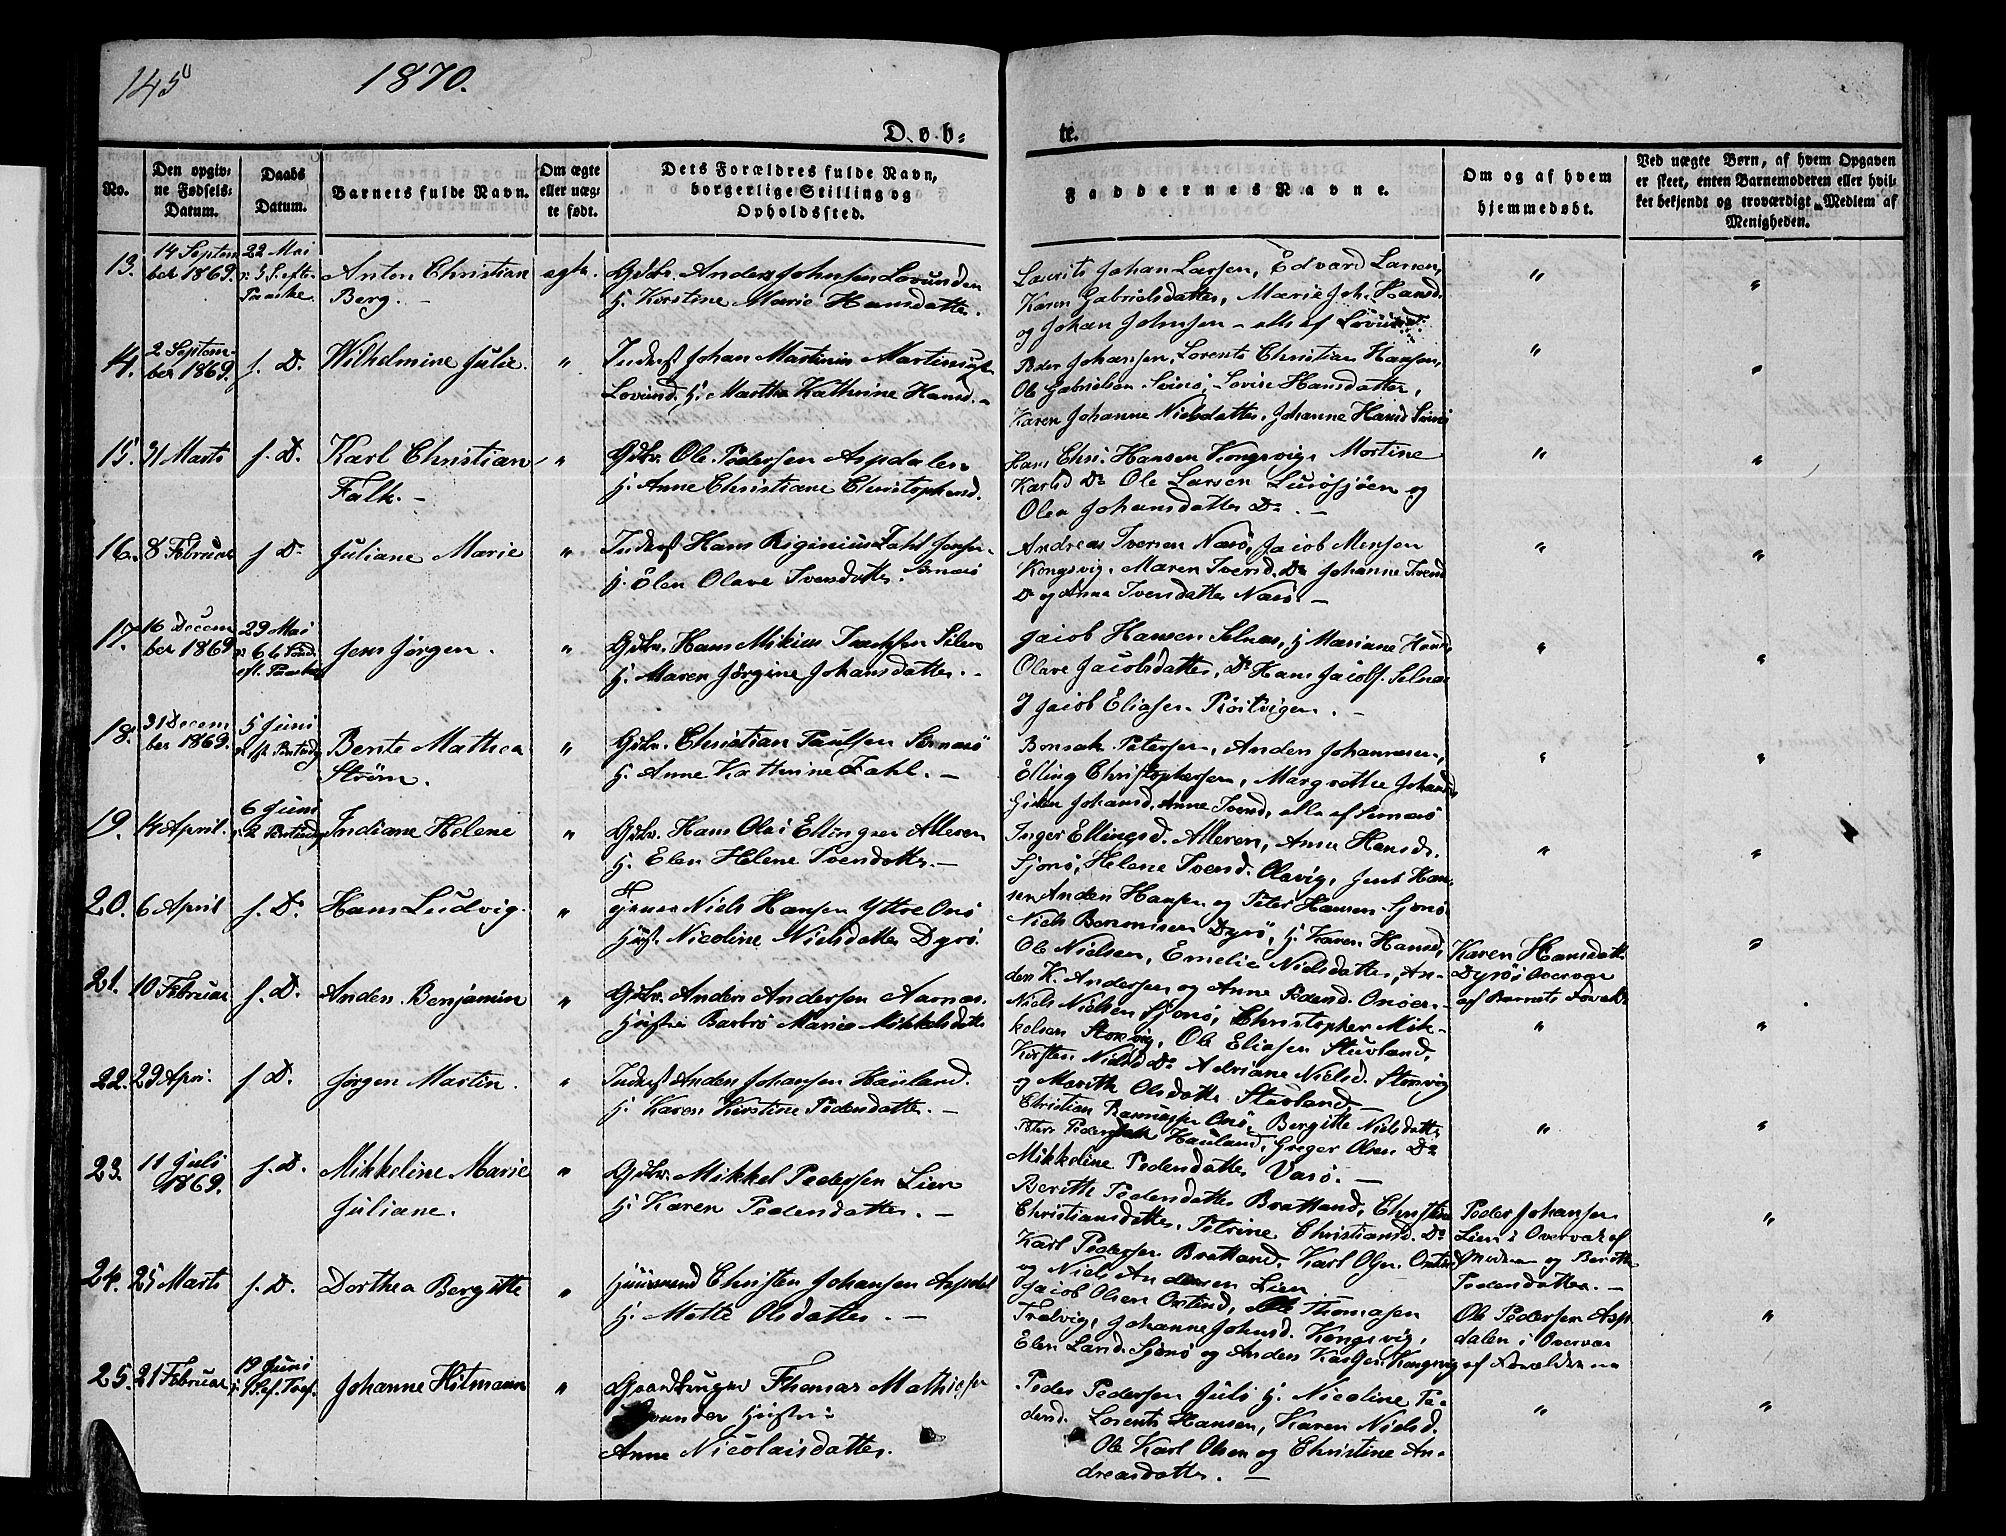 145
1870.
Døb-
te.
No.
Den opgiv-
ne Fødsels-
Datum.
Daabs
Datum.
Barnets fulde Navn.
Om ægte
eller uæg-
te født.
Dets Forældres fulde Navn,
borgerlige Stilling og
Opholdssted.
Faddernes Navne.
Om og af hvem
hjemmedøbt.
Ved uægte Børn, af hvem Opgaven
er skeet, enten Barnemoderen eller hvil-
ket bekjendt og troværdigt Medlem af
Menigheden.
13.
14 Septem
ber 1869.
22 Mai
5 S. efter
Paaske.
Anton Christian
Berg. -
Gdbr. Anders Johnsen Lovunden
H. Kirstine Marie Hansdatter.
Laurits Johan Larsen, Edvard Larsen,
Karen Gabrielsdatter, Marie Joh. Hansd.
og Johan Johnsen - alle af Lovund.
"
"
14.
2 Septem-
ber 1869.
s. D.
Wilhelmine Julie.
"
Inderst Johan Martinus
Lovund. H. Martha Kathrine Hansd. -
Peder Johansen, Lorents Christian Hansen,
Ole Gabrielsen Svinø, Lovise Hansdatter,
Karen Johanne Nielsdatter, Johanne Hansd
"
"
15.
31 Marts
s. D.
Karl Christian
Falk. -
"
Gdbr. Ole Pedersen Aspdalen
H. Anne Christiane Christophersd.
Hans Chri. Hansen Kongsvig,
Karlsd Do Ole Larsen Lurøsjøen og
Olea Johansdatter Do. -
"
"
16.
8 Februar
s. D.
Juliane Marie
"
Inderst Hans Riginius Dahl
H. Elen Olave Iversdatter.
Andreas Iversen Nasø, Jacob
Kongsvig, Maren Iversd. Do Johanne Iversd
Do og Anna Iversdatter Nasø. -
"
"
17.
16 Decem
ber 1869
29 Mai
6te Sønd.
eft. Paaske
Jens Jørgen.
"
Gdbr. Hans Mikias Silen
H. Maren Jørgine Johansdatter. -
Jacob Hansen Selnæs, H Mariane
Olave Jacobsdatter, Do Hans Jacobs. Selnæs
Jacob Eliasen -
"
"
18.
31 Decem
ber 1869.
5 Juni
Bente Mathea
Strøm.
"
Gdbr. Christian Paulsen
H. Anne Kathrine Dahl. -
Bonsak Petersen, Anders Johannesen,
Elling Christophersen, Margrethe
Johansd. Anne Iversd, alle af
"
"
19.
14 April.
6 Juni
Indiane Helene
"
Gdbr. Hans Olai Ellingsen Alderen
H. Elen Helene Iversdatter. -
Inger Ellingsd. Alderen, Anne Hansd.
Sjonø, Helene Iversd. Olavig, Jens Han-
sen Anders Hansen og Peter Hansen Sjonø.
"
"
20.
6 April
s. D.
Hans Ludvig.
"
Niels Hansen Yttre Onø
Hust. Nicoline Nielsdatter Dyrø.
Niels Dyrø, H. Karen Hansd,
Ole Nielsen, Emelie Nielsdatter, An-
ders K. Andersen og Anne Pedersd. Onøen. -
Karen Hansdatter
Dyrø i Overvær
af Barnets Forældre
"
21.
10 Februar
s. D.
Anders Benjamin
"
Gdbr. Anders Andersen Aarnæs.
Hustru Barbro Marie Mikkelsdatter
Niels Nielsen Sjonø, Christopher Mik-
kelsen Storvig, Ole Eliasen
Kirsten Nielsd Do Adriane Nielsd. Storvig
og Marith Olsdatter -
"
"
22.
29 Apri.
s. D.
Jørgen Martin.
"
Inderst Anders Johansen Hauland.
H. Karen Kirstine Pedersdatter. -
Christian Rasmussen Onø, Bergitte Nielsdatter,
Peter Pedersen Hauland, Greger Olsen Do
Mikkeline Pedersdatter Varø. -
"
"
23.
11 Juli
1869.
s. D.
Mikkeline Marie
Juliane.
"
Gdbr. Mikkel Pedersen Lien
H. Karen Pedersdatter. -
Berithe Pedersdatter Bratland, Christine
Christiansdatter, Petrine Christiansd. Do
Karl Pedersen Bratland, Karl Olsen
og Niels Andersen Lien
Peder Johansen
Lien i Overvær af
Moderen og Berithe
Pedersdatter. -
"
24.
25 Marts
s. D.
Dorthea Bergitte
"
Huusmand Christen Johansen
H. Mette Olsdatter. -
Jacob Olsen Thomasen
Johanne Johnsd. Kongsvig,
Elen Larsd. Sjonø og Anders Kongsvig
Ole Pedersen Asp-
dalen i Overvær
af Forældrene
"
25.
21 Februar
19 Juni
Johanne Hitmann
"
Gaardbruger Thomas Mathisen
Hustru
Anne Nicolaisdatter.
Peder Pedersen H. Nicoline Pe-
dersd. Lorents Hansen, Karen Nielsd.
Ole Karl Olsen og Christine An-
dreasdatter. -
"
"